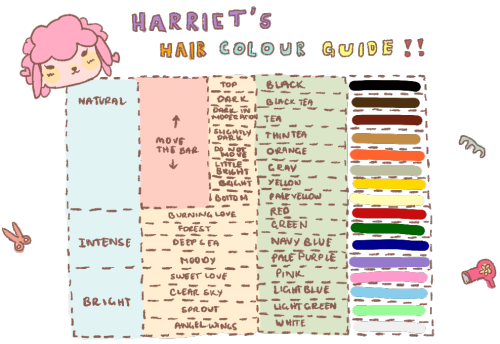 HARRIET'S
HAIR COLOUR GUIDE!!
NATURAL
↑
MOVE
THE BAR
↓
TOP BLACK
DARK BLACK TEA
DARK IN
MODERATION TEA
SLIGHTLY
DARK THIN TEA
DO NOT
MOVE ORANGE
LITTLE
BRIGHT GRAY
BRIGHT YELLOW
BOTTOM PALE YELLOW
INTENSE
BURNING LOVE RED
FOREST GREEN
DEEP SEA NAVY BLUE
MOODY PALE PURPLE
BRIGHT
SWEET LOVE PINK
CLEAR SKY LIGHT BLUE
SPROUT LIGHT GREEN
ANGEL WINGS WHITE